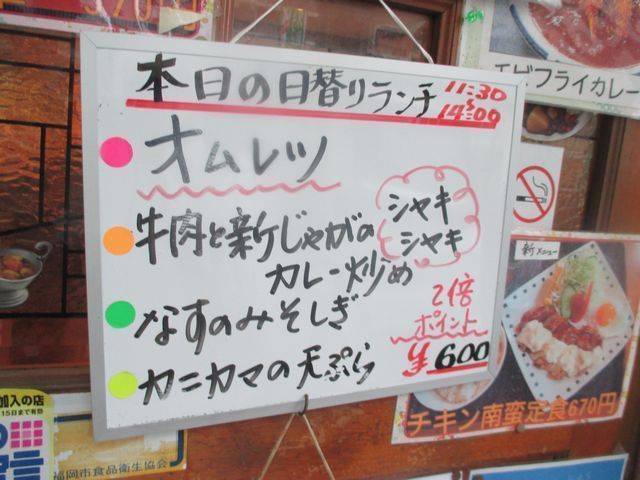 570円
エビフライカレー
本日の日替りランチ
11:30
～
14:00
オムレツ
牛肉と新じゃがの
カレー炒め
シャキ
シャキ
なすのみそしぎ
カニカマの天ぷら
2倍
ポイント
¥600
新メニュー
チキン南蛮定食670円
加入の店
15日まで有効
福岡市食品衛生協会